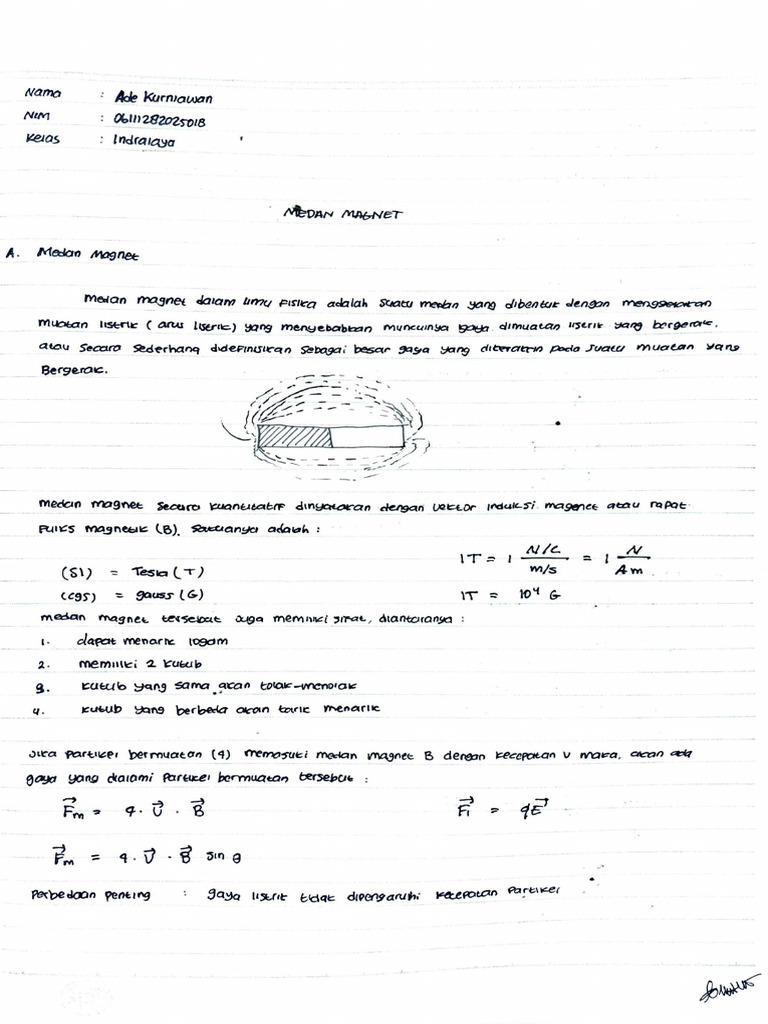 Nama : Ade Kurniawan
NIM : 06111282025018
Kelas : Indralaya
MEDAN MAGNET
A. Medan Magnet
Medan magnet dalam ilmu Fisika adalah suatu medan yang dibentuk dengan menggerakan
muatan listrik (arus listrik) yang menyebabkan munculnya gaya dimuatan listrik yang bergerak.
atau secara sederhana didefinisikan sebagai besar gaya yang diterapkan pada suatu muatan yang
Bergerak.
medan magnet secara kuantitatif dinyatakan dengan vektor induksi magenet atau rapat
Fulks magnetik (B). Satuanya adalah :
(SI) = Tesla (T) 1T = 1 N/C / m/s = 1 N / Am
(cgs) = gauss (G) 1T = 10⁴ G
medan magnet tersebut juga memiliki sifat, diantaranya :
1. dapat menarik logam
2. memiliki 2 kutub
3. kutub yang sama akan tolak-menolak
4. kutub yang berbeda akan tarik menarik
Jika partikel bermuatan (q) memasuki medan magnet B dengan kecepatan v maka, akan ada
gaya yang dialami partikel bermuatan tersebut :
F⃗m = q. v⃗ . B⃗ F⃗l = qE⃗
F⃗m = q. v⃗ . B⃗ sin θ
Perbedaan penting : gaya listrik tidak dipengaruhi kecepatan partikel